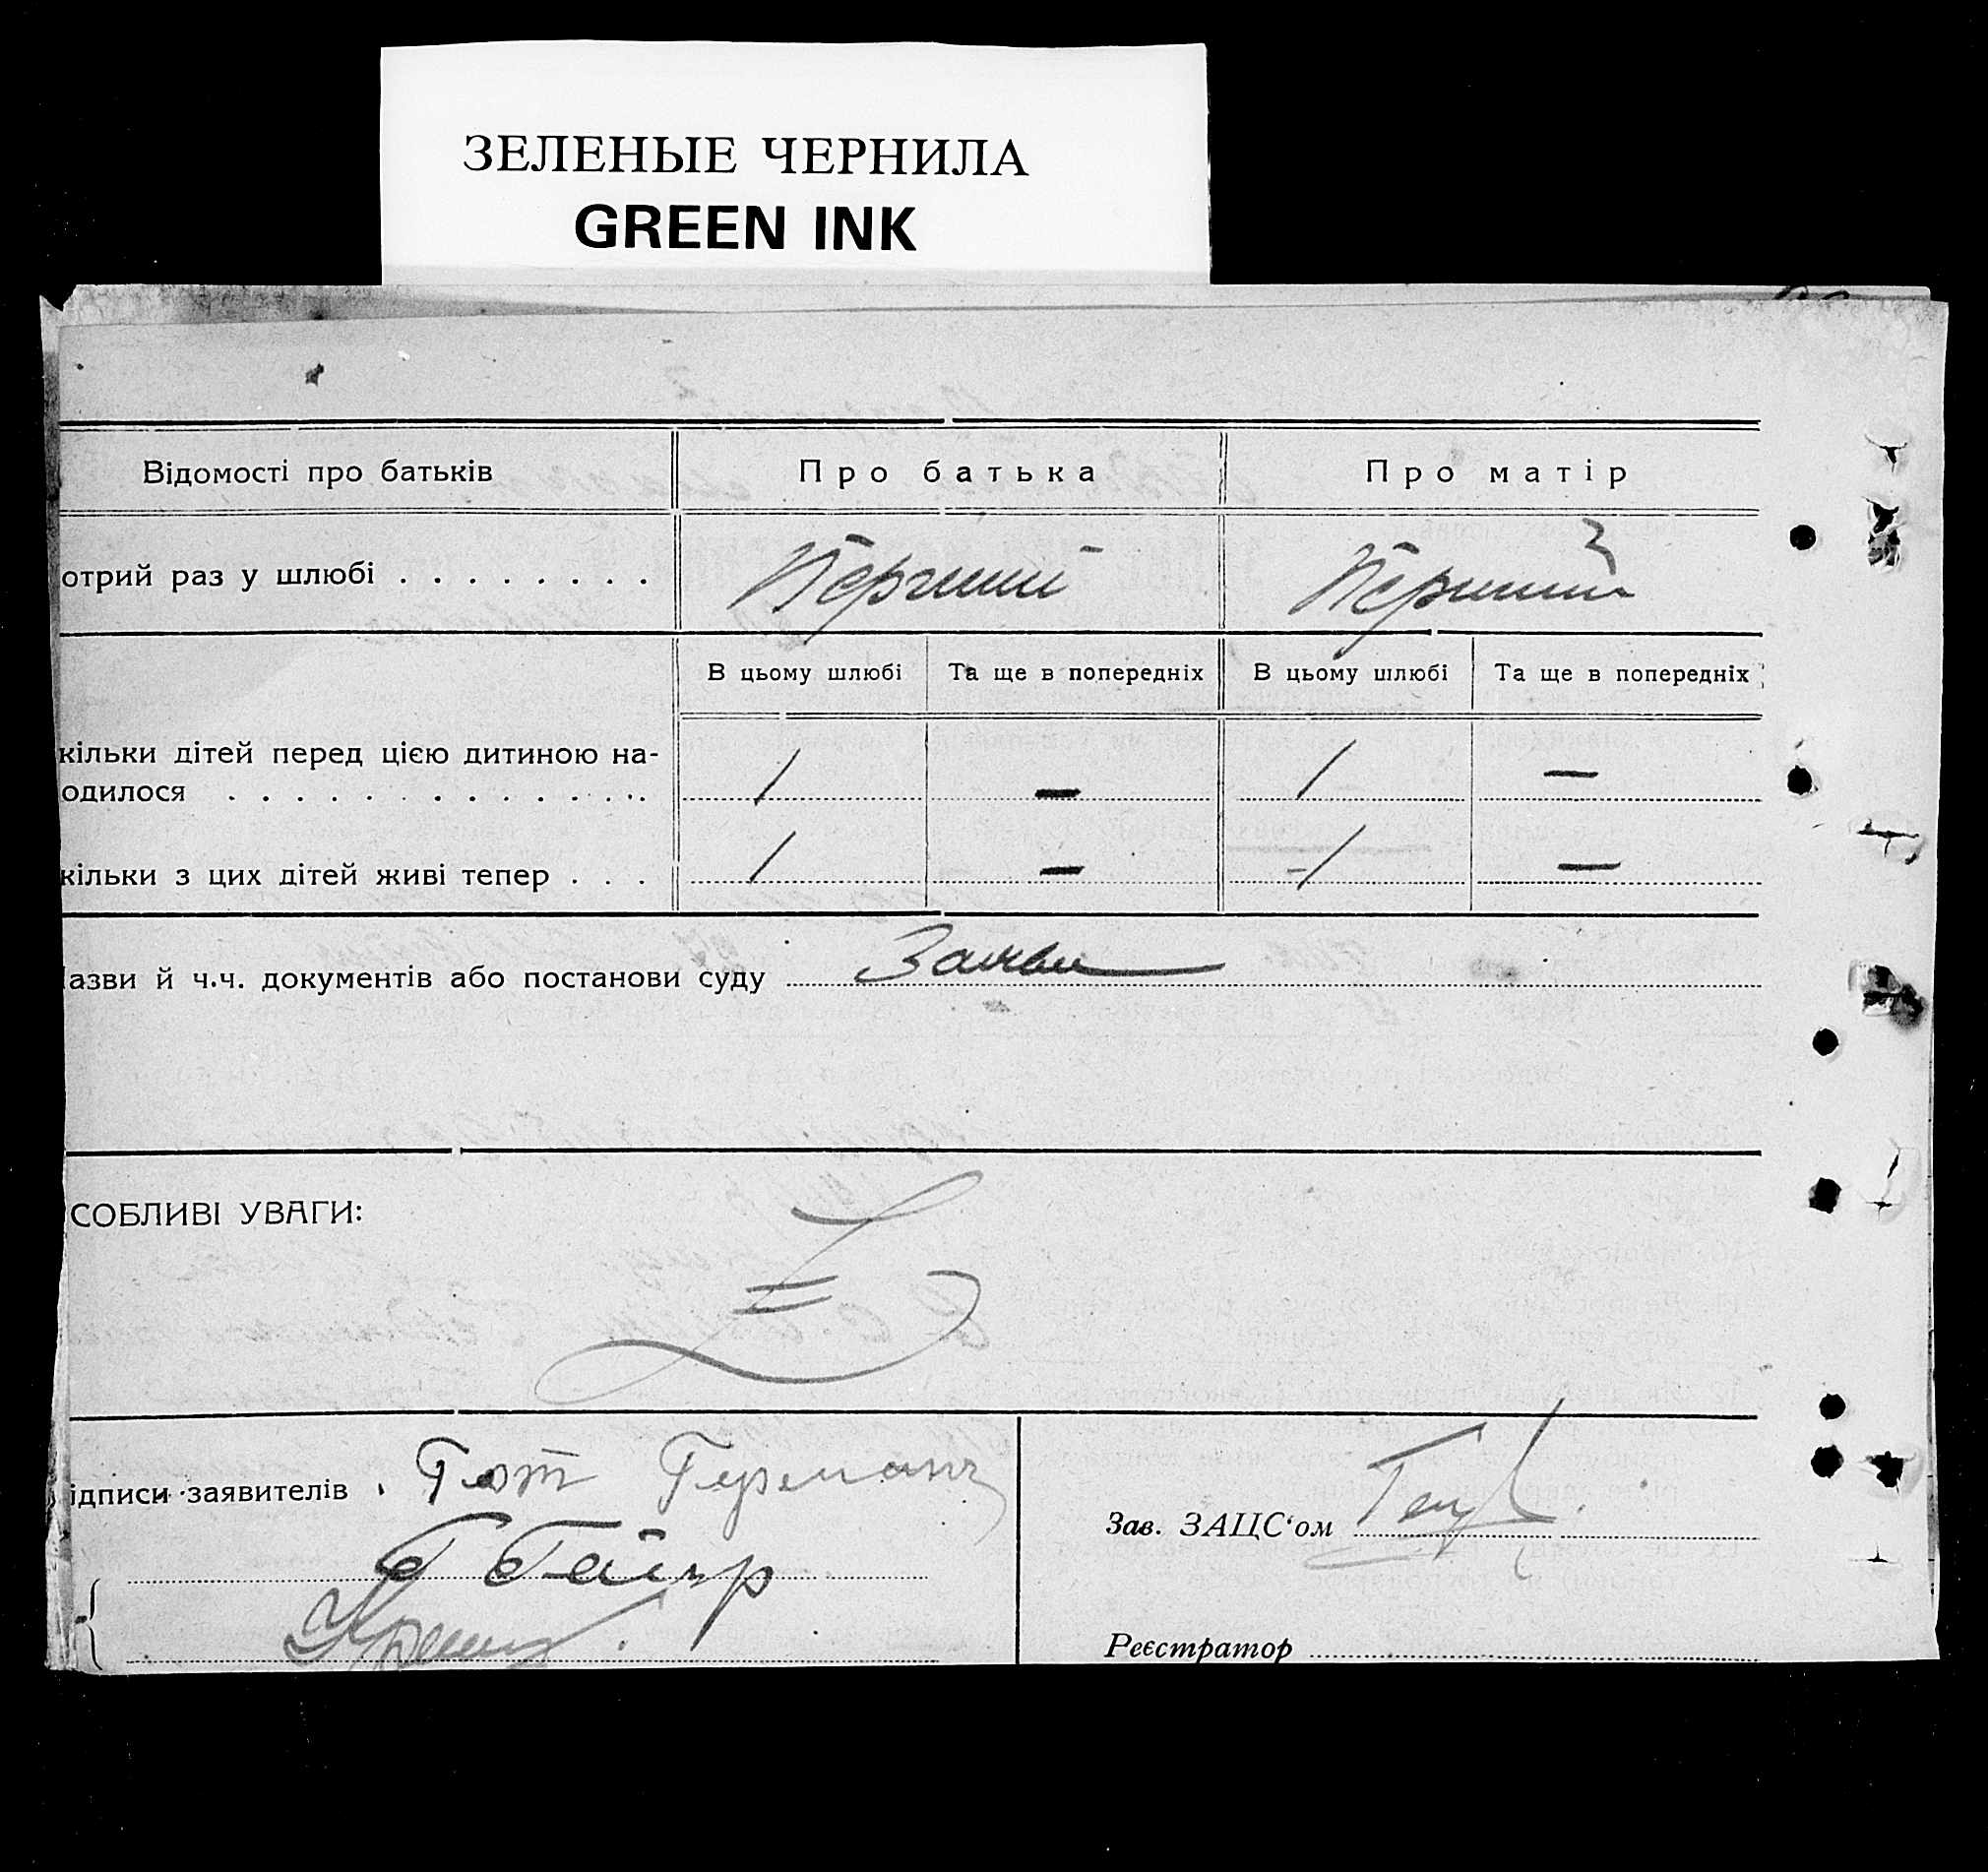 ЗЕЛЕНЫЕ ЧЕРНИЛА
GREEN INK
Відомості про батьків Про батька Про матір
отрий раз у шлюбі . . . . . . . . Перший Перший
В цьому шлюбі Та ще в попередніх В цьому шлюбі Та ще в попередніх
кільки дітей перед цією дитиною на-
одилося . . . . . . . . . . . . . 1 — 1 —
кільки з цих дітей живі тепер . . . 1 — 1 —
азви й ч.ч. документів або постанови суду Заяви
СОБЛИВІ УВАГИ:
ідписи заявителів Гот Германъ
Зав. ЗАЦС'ом
Реєстратор